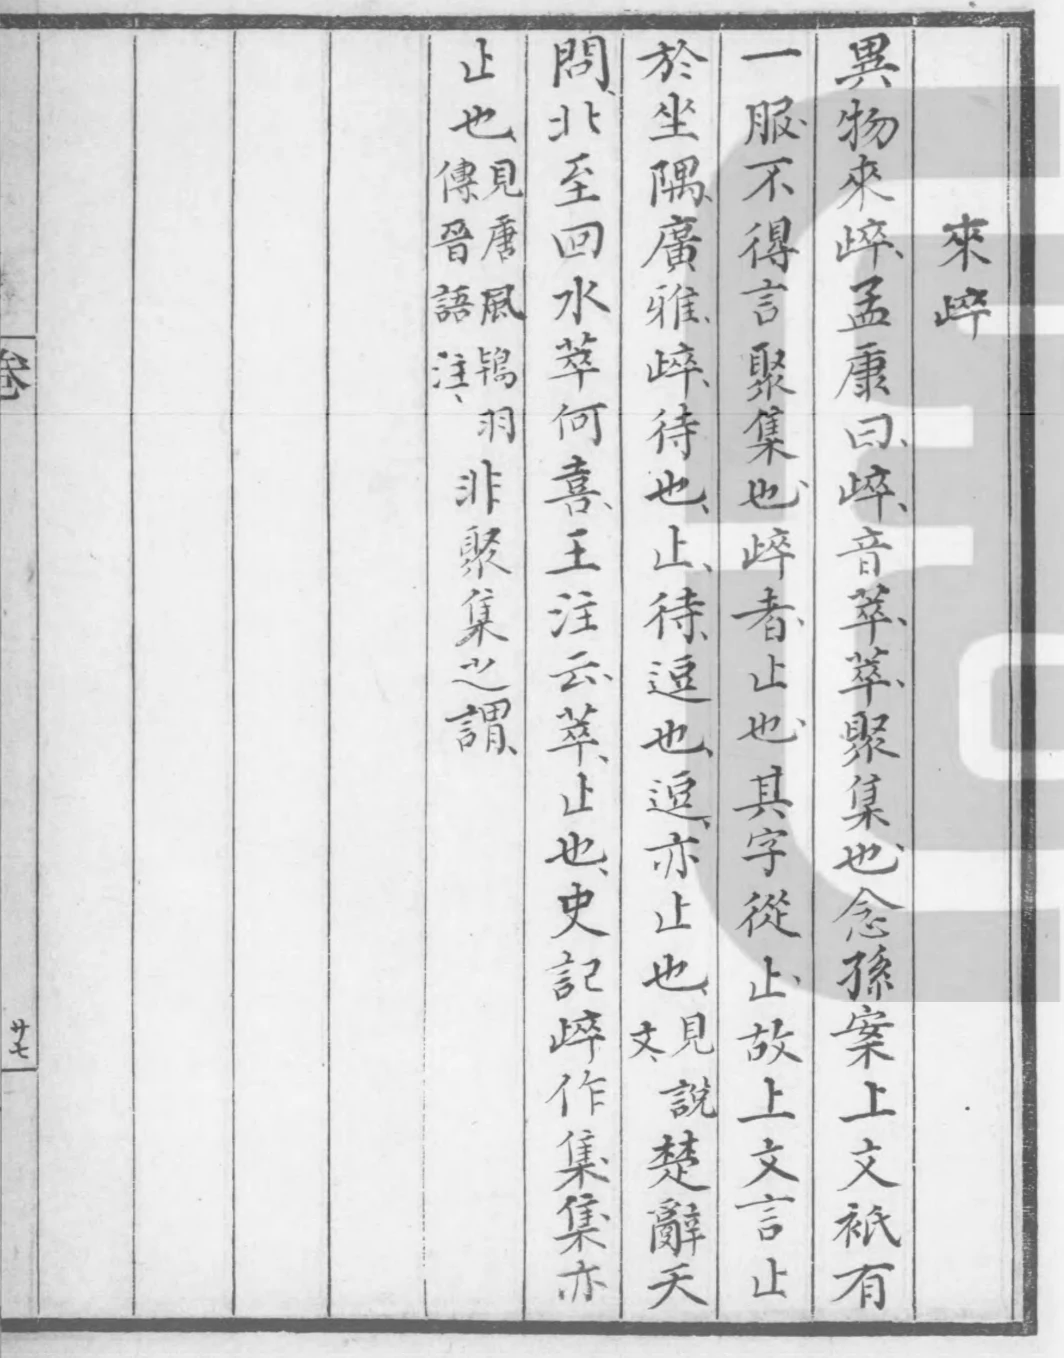 來崪
異物來崪、孟康曰、崪、音萃、萃、聚集也、念孫案上文祇有
一服不得言聚集也、崪者、止也、其字從止、故上文言止
於坐隅、廣雅、崪、待也、止、待、逗也、逗、亦止也、見說文、楚辭天
問、北至回水萃何喜、王注云、萃、止也、史記崪作集集亦
止也、見唐風鴇羽傳晉語注、非聚集之謂、
卷
廿七